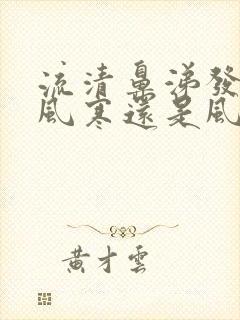 流清鼻涕發
風寒還是風
黃才雲